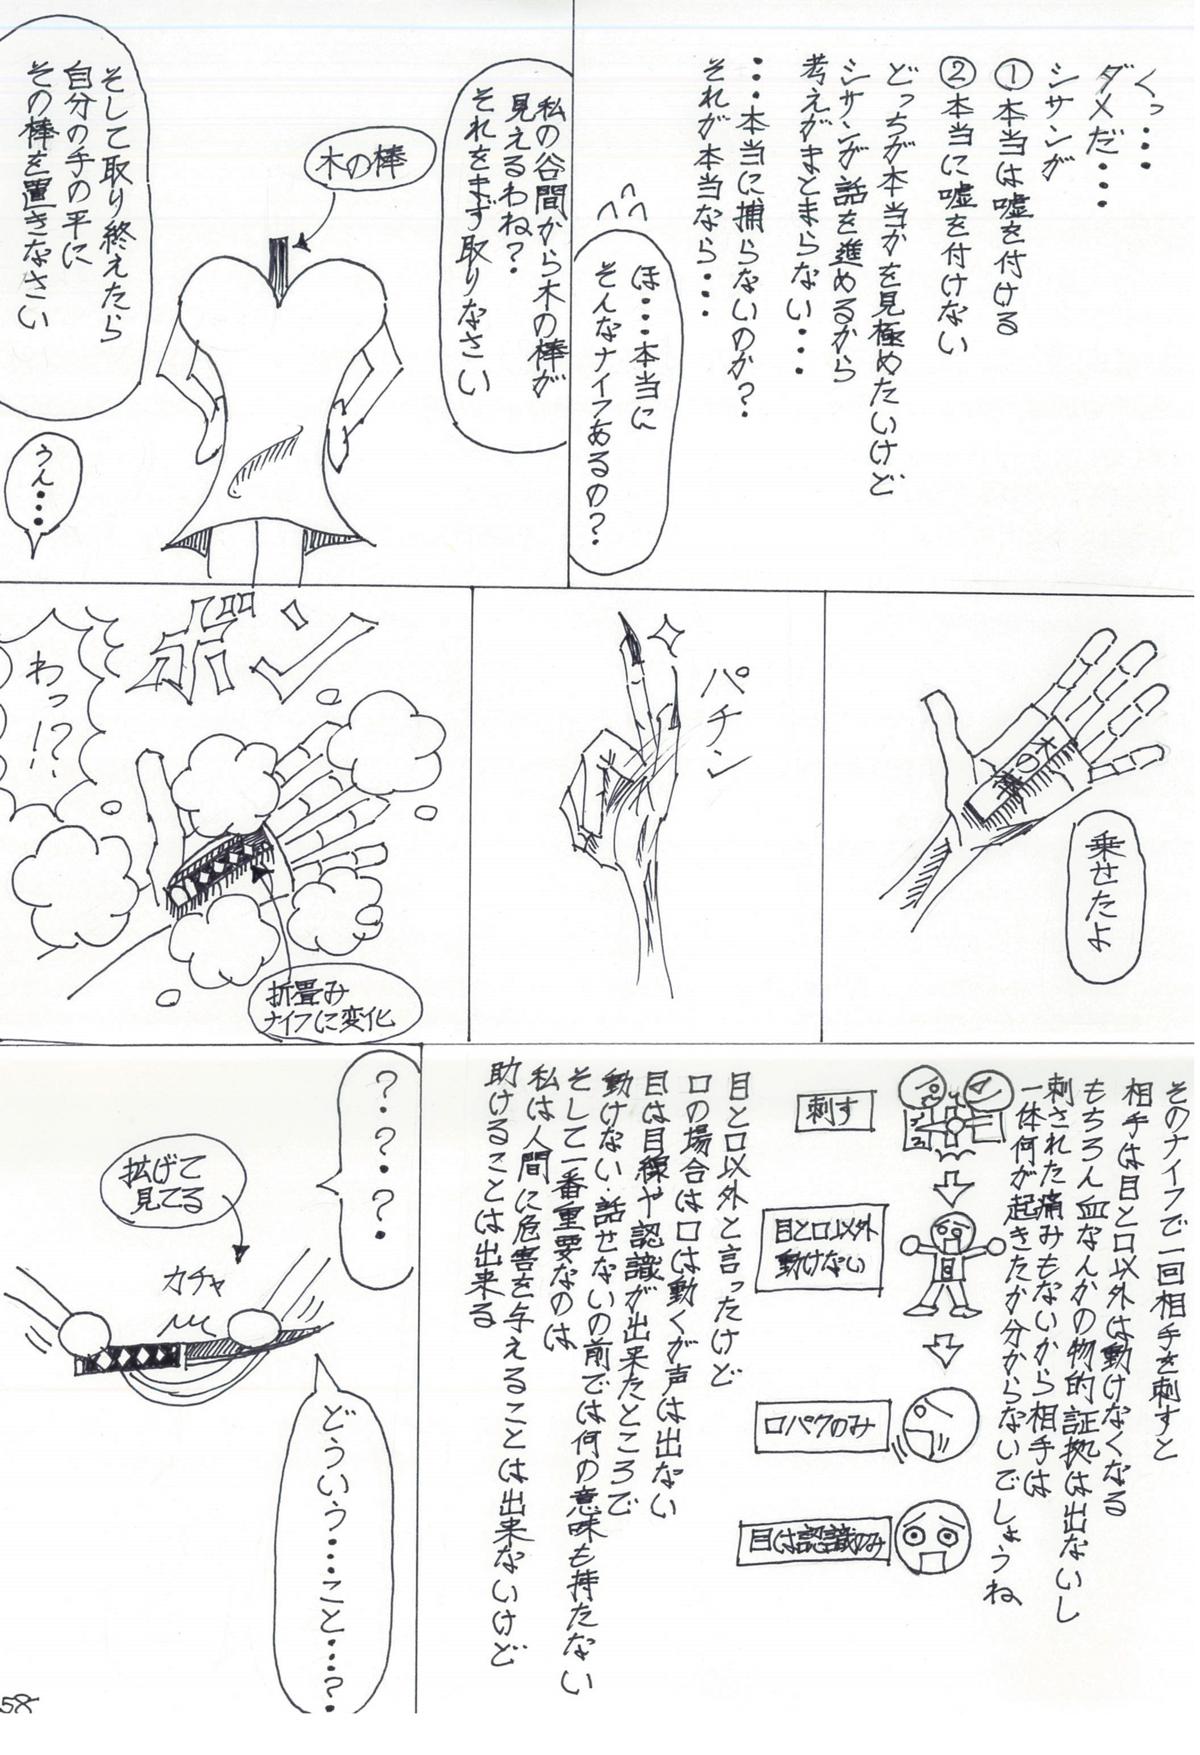 くっ・・・
ダメだ・・・・
シサンが
①本当は嘘を付ける
②本当に嘘を付けない
どっちが本当かを見極めたいけど
シサンが話を進めるから
考えがまとまらない・・・
・・・本当に捕らないのか?
それが本当なら・・・
ほ・・・本当に
そんなナイフあるの?
私の谷間から木の棒が
見えるわね?
それをまず取りなさい
木の棒
そして取り終えたら
自分の手の平に
その棒を置きなさい
うん・・・
木の棒
乗せたよ
パチン
ボンッ
わっ!?
折畳み
ナイフに変化
そのナイフで一回相手を刺すと
相手は目と口以外は動けなくなる
もちろん血なんかの物的証拠は出ないし
刺された痛みもないから相手は
一体何が起きたか分からないでしょうね
刺す
目と口以外
動けない
口パクのみ
目は認識のみ
目と口以外と言ったけど
口の場合は口は動くが声は出ない
目は目線や認識が出来たところで
動けない・話せないの前では何の意味も持たない
そして一番重要なのは
私は人間に危害を与えることは出来ないけど
助けることは出来る
?・?・?・
拡げて
見てる
カチャ
どういう・・・こと・・・?
58